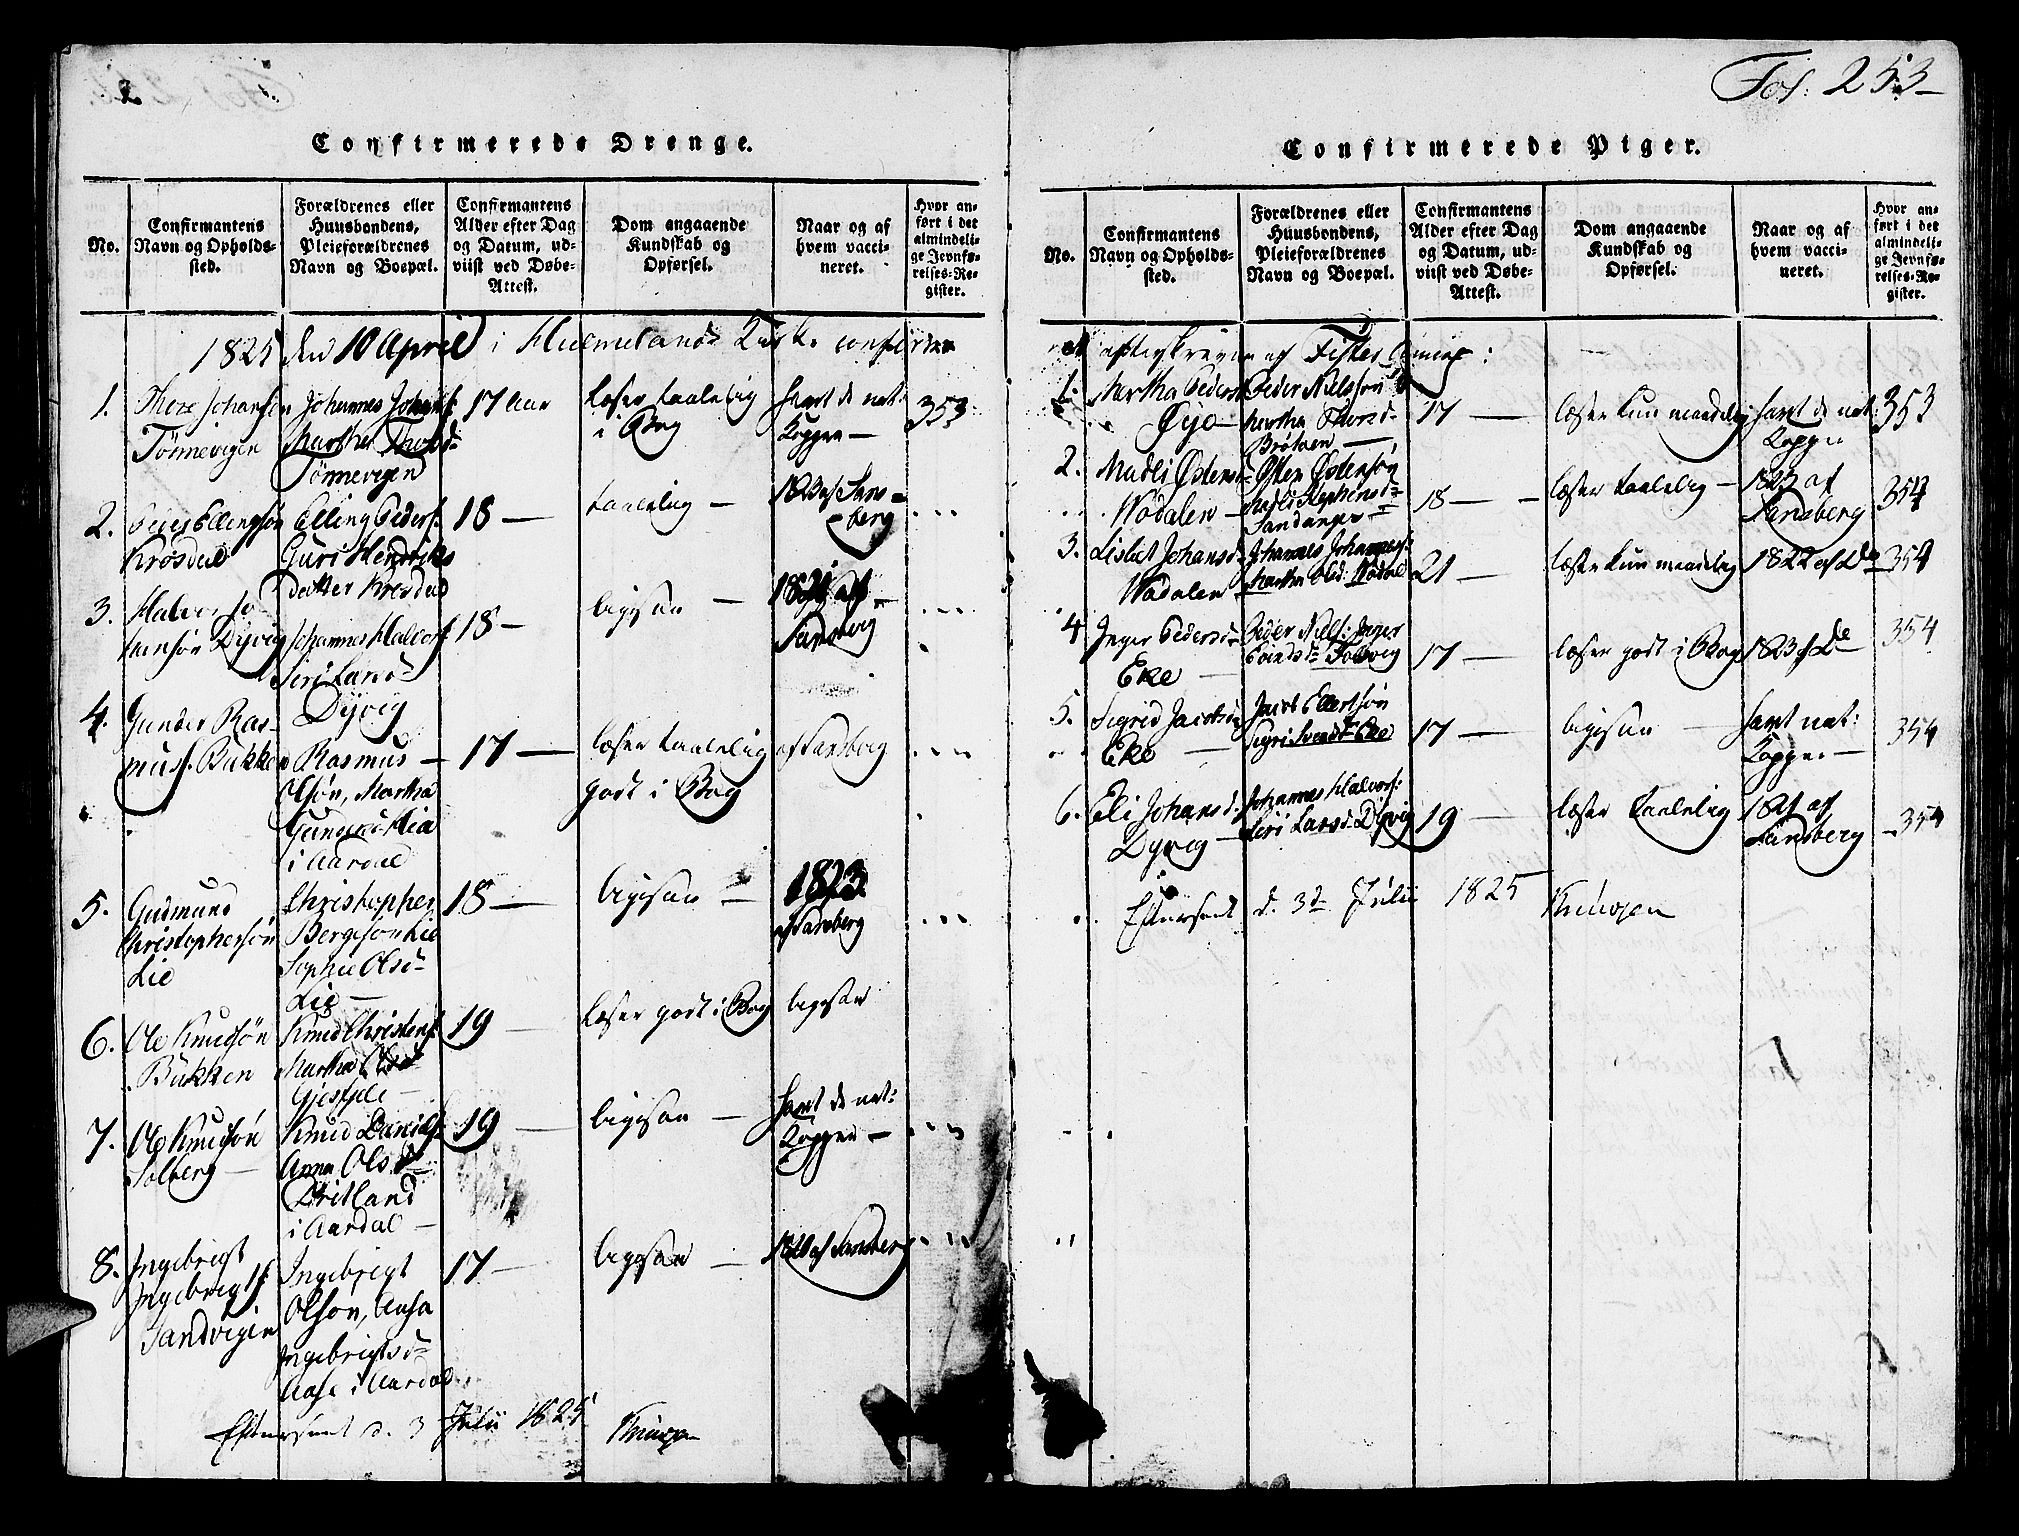 Fol. 253
Confirmerede Drenge.
No.
Confirmantens
Navn og Opholds-
sted.
Forældrenes eller
Huusbondens,
Pleieforældrenes
Navn og Boepæl.
Confirmantens
Alder efter Dag
og Datum, ud-
viist ved Døbe-
Attest.
Dom angaaende
Kundskab og
Opførsel.
Naar og af
hvem vacci-
neret.
Hvor an-
ført i det
almindeli-
ge Jevnfø-
relses-Re-
gister.
1825 den 10 April i Hielmelands Kirke confirmer
1. Johansen
Tønnevigen
Johannes Johans:
Martha
Tønnevigen
17 Aar
læser taalelig
i Bog
havt de nat:
Kopper —
353
2. Peder Ellingsøn
Krøsdal
Elling Peders:
Guri Hendriks
datter Krøsdal
18 —
taalelig —
1823 af Sans-
berg
3. Halvor Jo-
hansøn Dyvig
Johannes Halvors:
Siri Larsd:
Dyvig
18 —
ligesaa —
af
Sansberg
4. Gunder Ras-
muss. Bukken
Rasmus
Olsøn, Martha
Gundersd. Lia
i Aardal
17 —
læser taalelig
godt i Bog
af Sansberg
5. Gudmund
Christophersøn
Lie
Christopher
Bergeson Lie
Sophie Olsd:
Lie —
18 —
ligesaa —
1823
af Sansberg
6. Ole Knudsøn
Bukken
Knud Christens:
Martha Olsd:
19 —
læser godt i Bog
ligesaa
7. Ole Knudsøn
Solberg —
Knud Daniels:
Anna Olsd:
Britland
i Aardal —
19 —
ligesaa —
havt de nat:
Kopper —
8. Ingebrigt
Ingebrigts:
Sandvigen
Ingebrigt
Olson, Aasa
Ingebrigtsd:
Aase i Aardal
17 —
ligesaa —
af Sansberg
Efterseet d. 3 Julii 1825
Confirmerede Piger.
No.
Confirmantens
Navn og Opholds-
sted.
Forældrenes eller
Huusbondens,
Pleieforældrenes
Navn og Boepæl.
Confirmantens
Alder efter Dag
og Datum, ud-
viist ved Døbe-
Attest.
Dom angaaende
Kundskab og
Opførsel.
Naar og af
hvem vacci-
neret.
Hvor an-
ført i det
almindeli-
ge Jevnfø-
relses-Re-
gister.
efterskrevne af Fister Annex:
1. Martha Pedersd:
Øye —
Peder Nielsøn
Martha Thorsd:
17 —
læser kun maadelig
havt de nat:
Kopper
353
2. Madli Østensd:
Wadalen —
Østen Østensøn
Madli Stephensd:
Sandanger
18 —
læser taalelig —
1823 af
Sansberg
354
3. Lisbet Johansd:
Wadalen
Johannes Johannes:
Martha Olsd: Wadal
21 —
læser kun maadelig
1822 af Do
354
4 Inger Pedersd:
Eke —
Peder Niels: Inger
17 —
læser godt i Bog
1823 af Do
354
5. Sigrid Jacobsd:
Eke —
Jacob Ellertsøn
Sigri Svendsd: Eke
17 —
ligesaa —
havt nat:
Kopper —
354
6. Eli Johansd:
Dyvig —
Johannes Halvors:
Siri Larsd: Dyvig
19 —
læser taalelig
af
Sansberg
354
Efterseet d. 3d Julii 1825